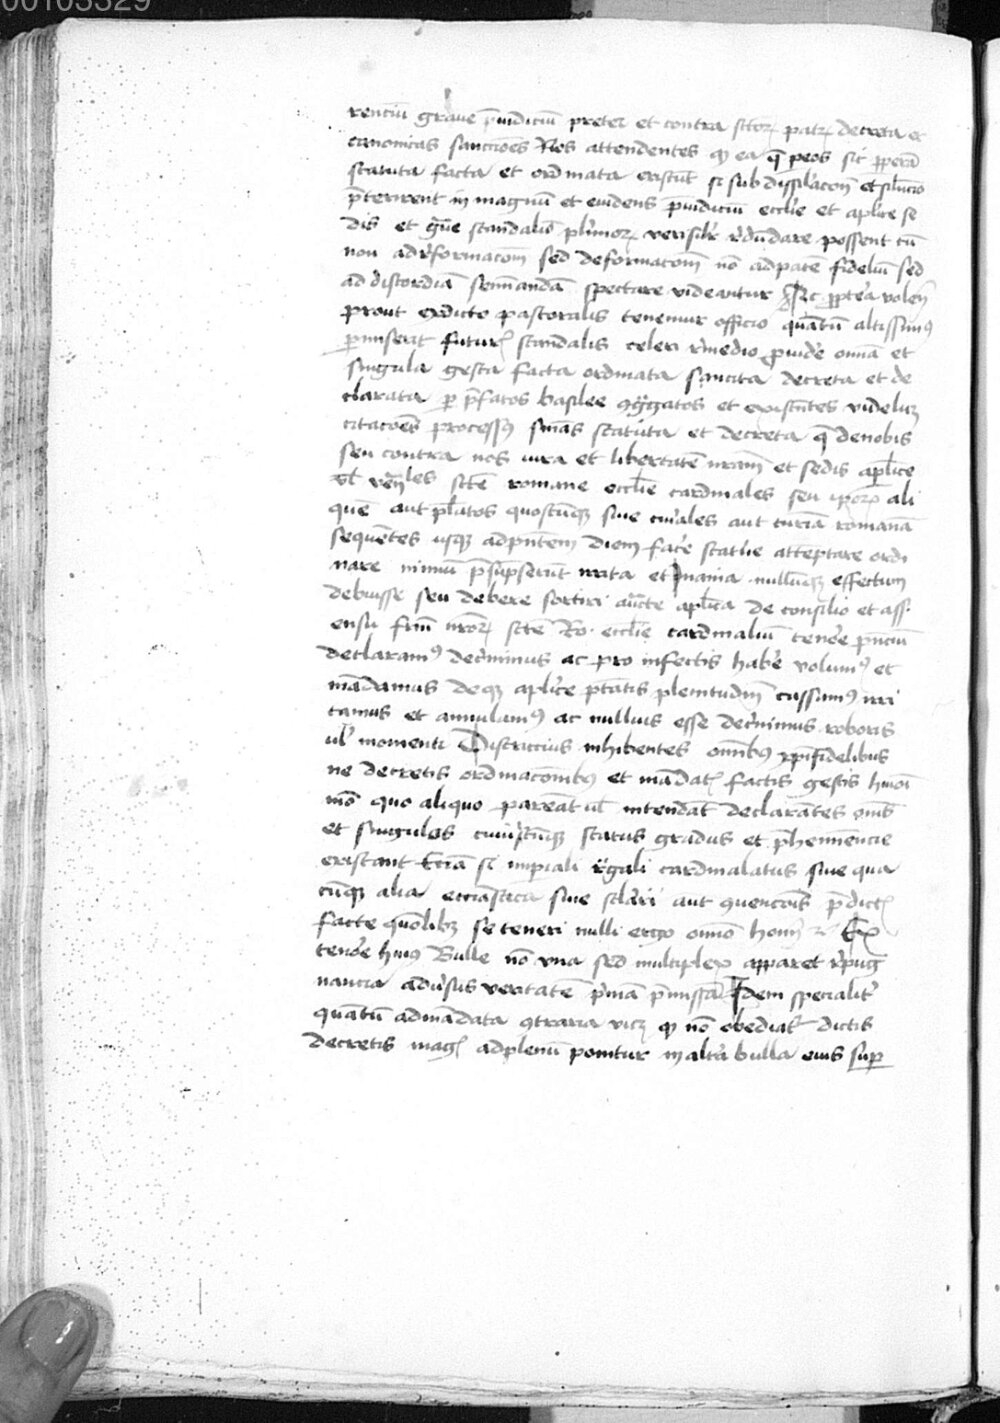 00103329
rencium graue p̄iudiciū preter et contra sctorꝫ patrꝫ decreta et
canonicas sancciōes Nos attendentes ꝙ ea q̄ p eos sic ꝑperā
statuta facta et ordinata existūt si sub dissil̄acōn̄ et sil̄encio
p̄terirent in magnū et euidens p̄iudiciū eccl̄ie et apl̄ice se
dis et gͣue scandalū pl̄imorꝫ verisil̄r r̄dūdare possent cū
non ad r̄formacōm̄ sed deformacōm̄ nō ad patē fideliū sed
ad discordiā semīandā spectare videantur Sic ꝓptea volen̄
prout ex dicto pastoralis tenemur officio quātū altissimꝰ
ꝑmiserit futur̄ scandalis celeri r̄medio ꝓuide omīa et
singula gesta facta ordinata sancita decreta et de
clarata ꝑ p̄fatos basilee ꝯgr̄gatos et existn̄tes videlicꝫ
citacōes processꝰ sn̄ias statuta et decreta q̄ de nobis
seu contra nos iura et libertatē nr̄am et sedis apl̄ice
vl̄ ven̄les scte romane eccl̄ie cardinales seu ip̄orꝫ ali
quē aut pl̄atos quoscūqꝫ siue curiales aut curiā romanā
sequētes usqꝫ ad pn̄tem diem fac̄e statūe attēptare ordi
nare nimiū p̄sūpserūt irrita et inania nullūqꝫ effectum
debuisse seu debere sortiri auct̄e apl̄ica de consilio et ass
ensu fr̄m nr̄orꝫ scte Ro. eccl̄ie cardinaliū tenōe pn̄ciū
declaramꝰ dec̄nimus ac pro infectis hab̄e volumꝰ et
mādamus deqꝫ apl̄ice ptātis plenitudin̄ cassamꝰ irri
tamus et annulamꝰ ac nullius esse dec̄nimus roboris
ul̄ momenti Districcius inhibentes omībꝰ xp̄ifidelibus
ne decretis ordinacōibꝰ et mādat̄ factis gestis hmōi
mō quo aliquo pareāt ul̄ intendāt declarātes om̄s
et singulos cuiuscūqꝫ status gradus et p̄heminēcie
existant Eciā si imperiali r̄gali cardinalatus siue qua
cūqꝫ alia eccl̄iastica siue sclāri aut ꝯuencōis p̄dict̄
facte quōlibꝫ se teneri nulli ergo omīo hom̄ rc̄ Ex
tenōe huiꝰ Bulle nō vna sed multiplex apparet r̄pug
nancia adūsus veritatē p̄mā p̄missā Idem specialit̄
quātū ad mādata ꝯtraria vicꝫ ꝙ nō obediat̄ dictis
decretis maḡ ad plenū ponitur in altā bulla eius sup